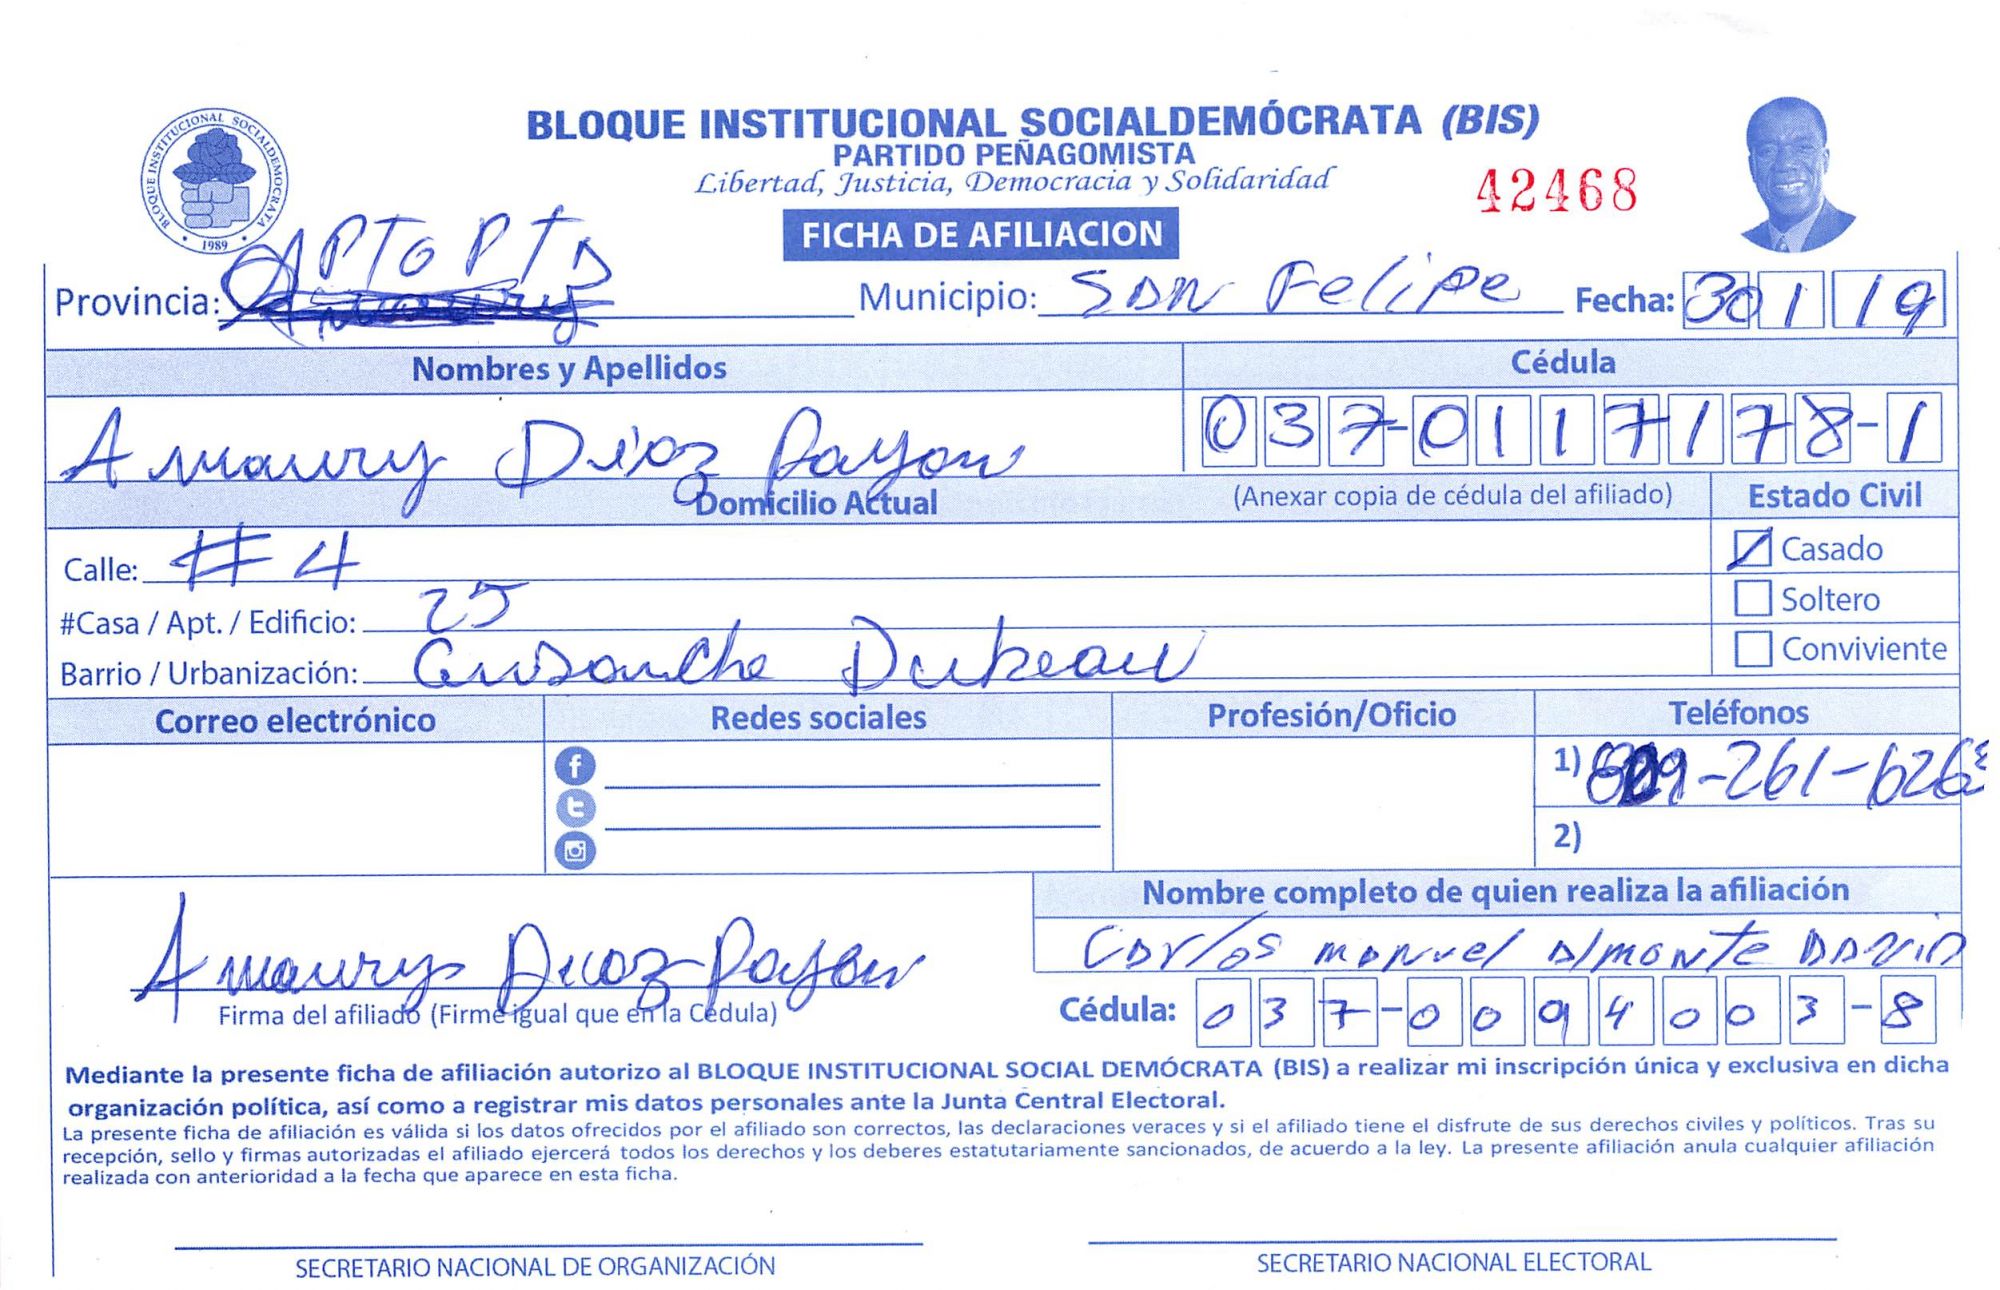 BLOQUE INSTITUCIONAL SOCIALDEMÓCRATA (BIS)
PARTIDO PEÑAGOMISTA
Libertad, Justicia, Democracia y Solidaridad
42468
BLOQUE INSTITUCIONAL SOCIALDEMOCRATA
• 1989 •
FICHA DE AFILIACION
Provincia: PTO PTA Municipio: SAN Felipe Fecha: 30 1 19
Nombres y Apellidos Cédula
Amaury Díaz Payan 037-0117178-1
Domicilio Actual (Anexar copia de cédula del afiliado) Estado Civil
Calle: # 4 Casado
#Casa / Apt. / Edificio: 25 Soltero
Barrio / Urbanización: Conviviente
Correo electrónico Redes sociales Profesión/Oficio Teléfonos
1) 809-261-626
2)
Nombre completo de quien realiza la afiliación
Carlos manuel Almonte
Amaury Diaz Payan
Firma del afiliado (Firme igual que en la Cédula) Cédula: 037-0094003-8
Mediante la presente ficha de afiliación autorizo al BLOQUE INSTITUCIONAL SOCIAL DEMÓCRATA (BIS) a realizar mi inscripción única y exclusiva en dicha
organización política, así como a registrar mis datos personales ante la Junta Central Electoral.
La presente ficha de afiliación es válida si los datos ofrecidos por el afiliado son correctos, las declaraciones veraces y si el afiliado tiene el disfrute de sus derechos civiles y políticos. Tras su
recepción, sello y firmas autorizadas el afiliado ejercerá todos los derechos y los deberes estatutariamente sancionados, de acuerdo a la ley. La presente afiliación anula cualquier afiliación
realizada con anterioridad a la fecha que aparece en esta ficha.
SECRETARIO NACIONAL DE ORGANIZACIÓN SECRETARIO NACIONAL ELECTORAL